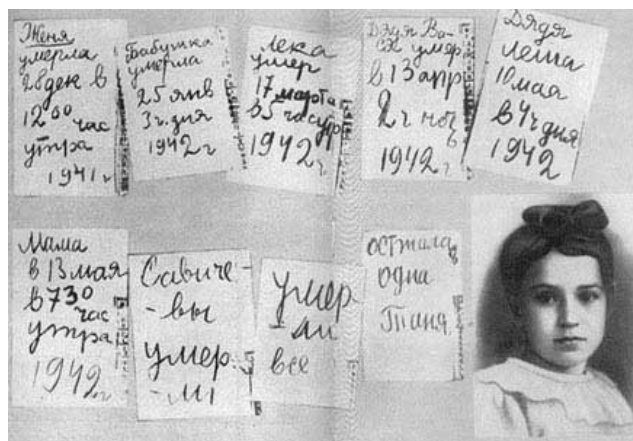 Женя
умерла
28 дек в
12 00 час
утра
1941 г
Бабушка
умерла
25 янв
3 ч. дня
1942 г
Лека
умер
17 марта
в 5 час утр
1942 г
Дядя Ва-
ся умер
в 13 апр
2 ч ноч
1942 г
Дядя
Леша
10 мая
в 4 ч дня
1942
Мама
в 13 мая
в 7 30
час
утра
1942 г
Савиче-
-вы
умер
-ли
умер
-ли
все
осталась
одна
Таня.